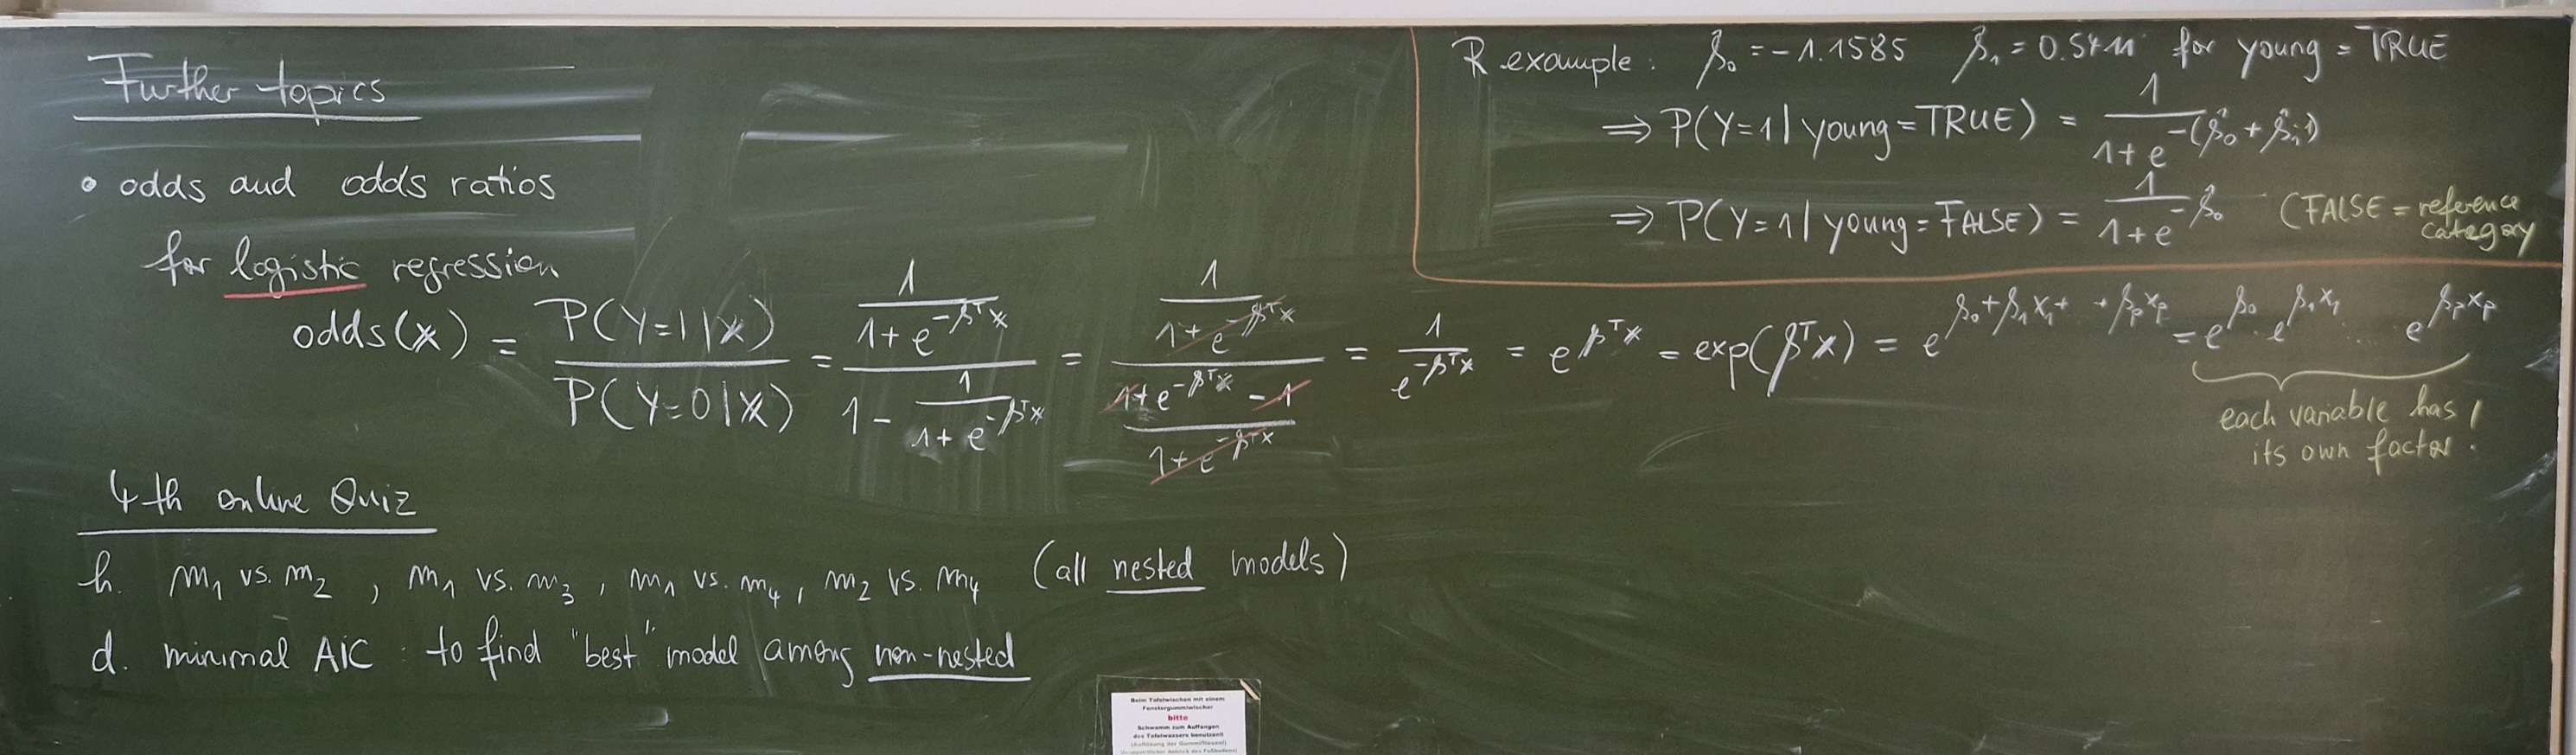 Further topics
• odds and odds ratios
for logistic regression
odds(x) = P(Y=1|x) / P(Y=0|x) = (1 / (1+e^{-β^T x})) / (1 - 1 / (1+e^{-β^T x})) = (1 / (1+e^{-β^T x})) / ((1+e^{-β^T x} - 1) / (1+e^{-β^T x})) = 1 / e^{-β^T x} = e^{β^T x} = exp(β^T x) = e^{β₀+β₁x₁+ +βₚxₚ} = e^{β₀} · e^{β₁x₁} ... e^{βₚxₚ}
each variable has
its own factor!
R example: β̂₀ = -1.1585 β̂₁ = 0.5411 for young = TRUE
⇒ P(Y=1 | young=TRUE) = 1 / (1+e^{-(β̂₀+β̂₁·1)})
⇒ P(Y=1 | young=FALSE) = 1 / (1+e^{-β̂₀}) (FALSE = reference
category
4th online Quiz
h. m₁ vs. m₂, m₁ vs. m₃, m₁ vs. m₄, m₂ vs. m₄ (all nested models)
d. minimal AIC: to find "best" model among non-nested
Beim Tafelwischen mit einem
Fenstergummiwischer
bitte
Schwamm zum Auffangen
des Tafelwassers benutzen!!